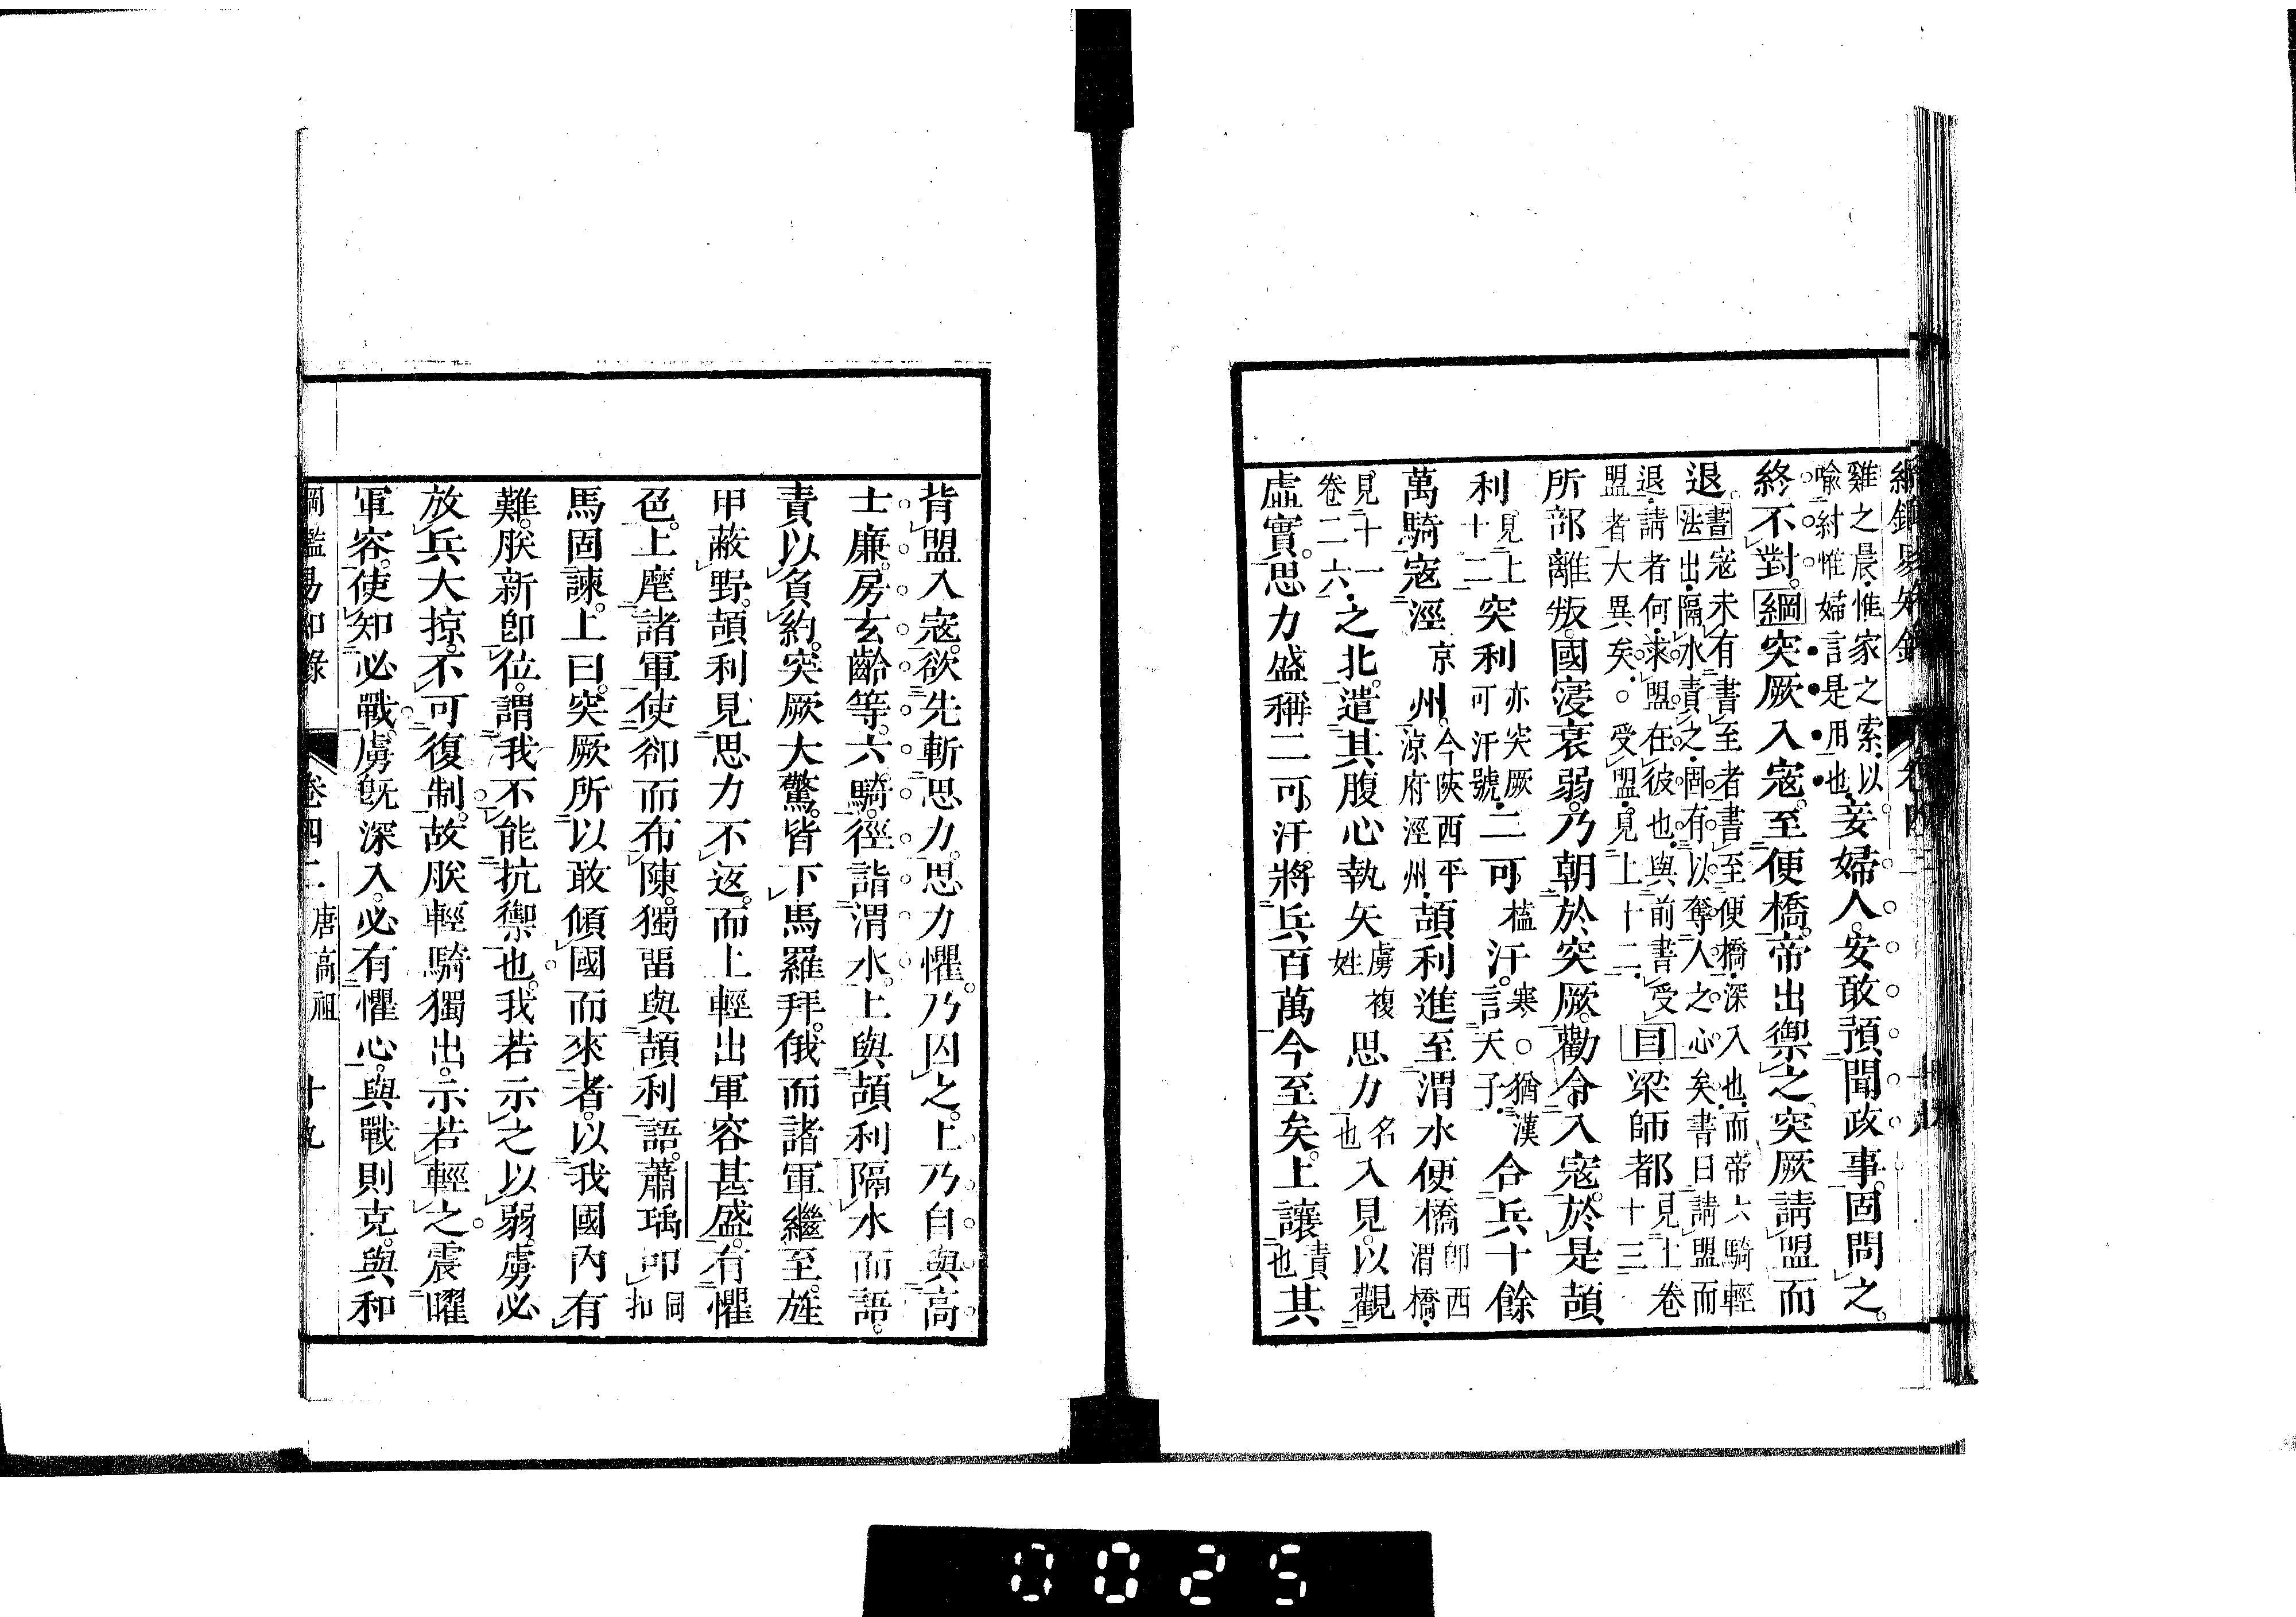 雞之晨惟家之索以
喻紂惟婦言是用也
妾婦人安敢預聞政事固問之
終不對綱突厥入寇至便橋帝出禦之突厥請盟而
退
書寇未有書至者書至便橋深入也而帝六騎輕
法出隔水責之固有以奪人之心矣書曰請盟而
退請者何求盟在彼也與前書受
盟者大異矣○受盟見上十二
目梁師都
見上卷
十三
所部離叛國寖衰弱乃朝於突厥勸令入寇於是頡
利
見上
十二
突利
亦突厥
可汗號
二可
榼
汗
寒○猶漢
言天子
合兵十餘
萬騎寇涇
京
州
今陝西平
涼府涇州
頡利進至渭水便橋
卽西
渭橋
見十一
卷二六
之北遣其腹心執矢
虜複
姓
思力
名
也
入見以觀
虛實思力盛稱二可汗將兵百萬今至矣上讓
責
也
其
背盟入寇欲先斬思力思力懼乃囚之上乃自與高
士廉房玄齡等六騎徑詣渭水上與頡利隔水而語
責以負約突厥大驚皆下馬羅拜俄而諸軍繼至旌
甲蔽野頡利見思力不返而上輕出軍容甚盛有懼
色上麾諸軍使卻而布陳獨留與頡利語蕭瑀叩
同
扣
馬固諫上曰突厥所以敢傾國而來者以我國內有
難朕新卽位謂我不能抗禦也我若示之以弱虜必
放兵大掠不可復制故朕輕騎獨出示若輕之震曜
軍容使知必戰虜旣深入必有懼心與戰則克與和
綱鑑易知錄 卷四二 唐高祖 十九
0025